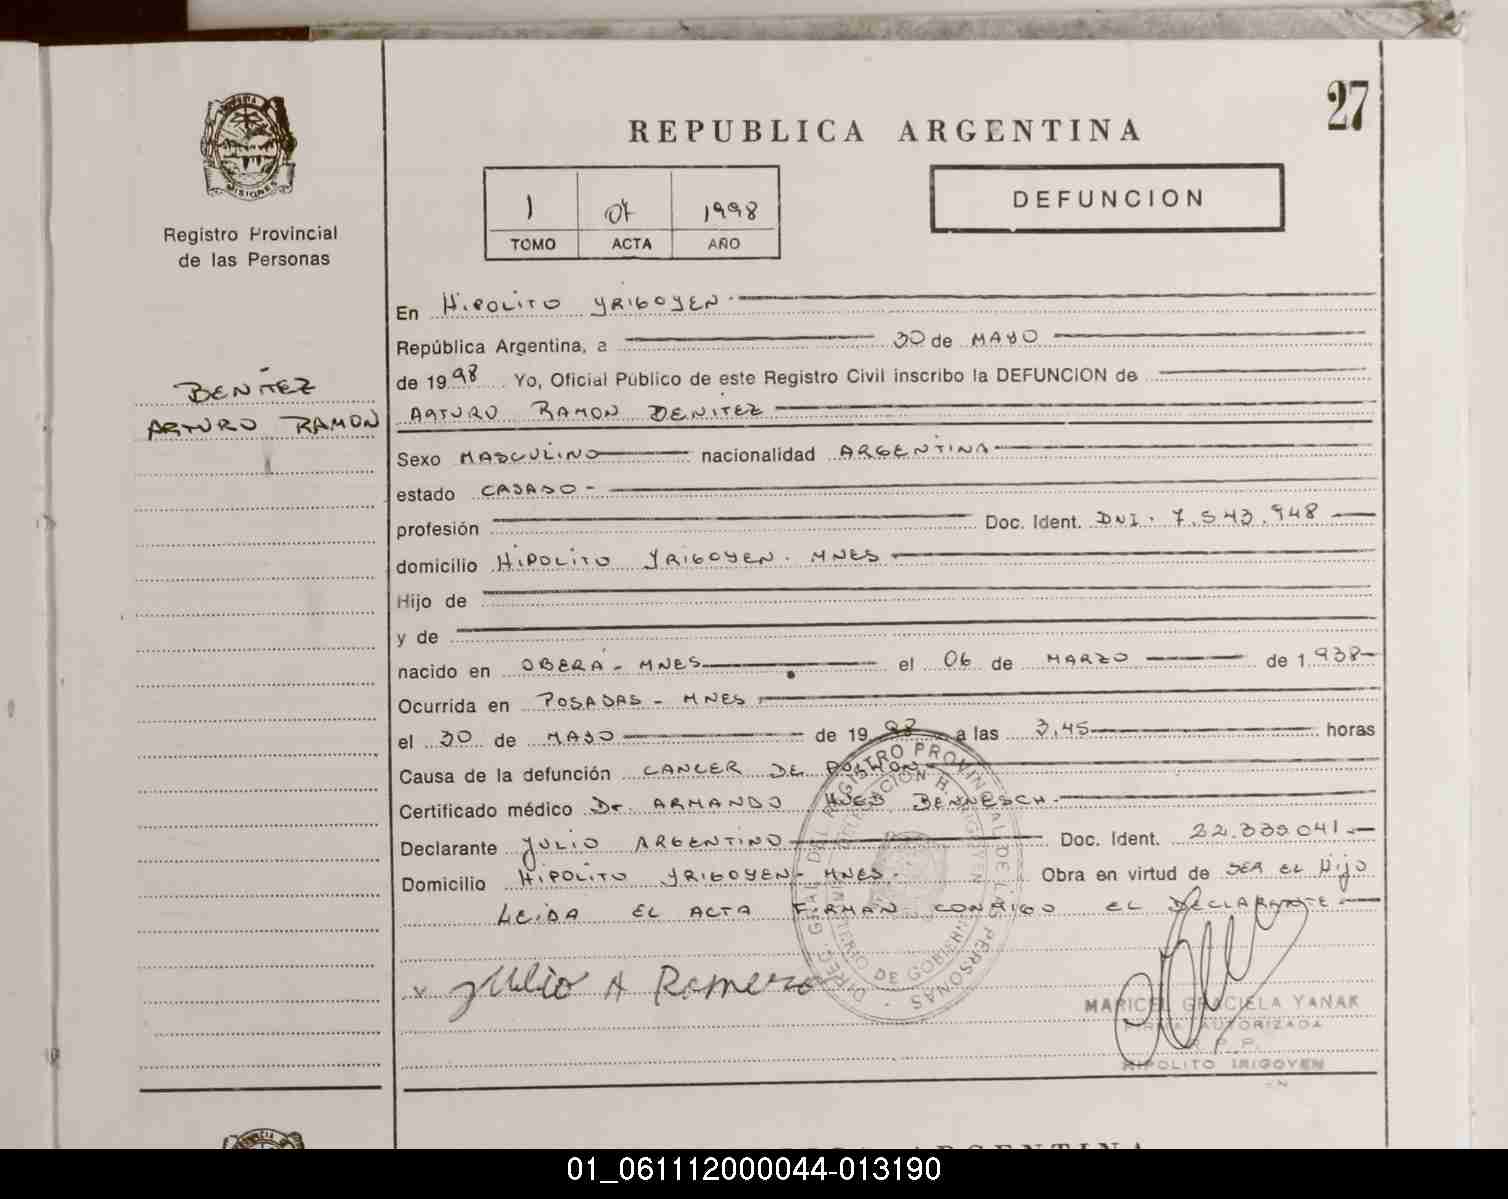 27
REPUBLICA ARGENTINA
MISIONES
Registro Provincial
de las Personas
1 07 1998
TOMO ACTA AÑO
DEFUNCION
BENÍTEZ
ARTURO RAMON
En HIPOLITO YRIGOYEN.
República Argentina, a 30 de MAYO
de 1998 Yo, Oficial Público de este Registro Civil inscribo la DEFUNCION de
ARTURO RAMON BENITEZ
Sexo MASCULINO nacionalidad ARGENTINA
estado CASADO -
profesión Doc. Ident. DNI. 7.543.948
domicilio HIPOLITO YRIGOYEN. MNES
Hijo de
y de
nacido en OBERÁ - MNES el 06 de MARZO de 1.938
Ocurrida en POSADAS - MNES
el 30 de MAYO de 1998 a las 3,45 horas
Causa de la defunción CANCER DE
Certificado médico Dr. ARMANDO BENNESCH.
Declarante JULIO ARGENTINO Doc. Ident. 22.335.041
Domicilio HIPOLITO YRIGOYEN - MNES. Obra en virtud de SER EL HIJO
LEIDA EL ACTA FIRMAN CONMIGO EL DECLARANTE
x Julio A Romero
DIREC. GRAL. DEL REGISTRO PROVINCIAL DE LAS PERSONAS
DELEGACION H. IRIGOYEN
MINISTERIO DE GOBIERNO
MARICEL GRACIELA YANAK
FIRMA AUTORIZADA
R. P. P.
HIPOLITO IRIGOYEN
ARGENTINA
01_061112000044-013190